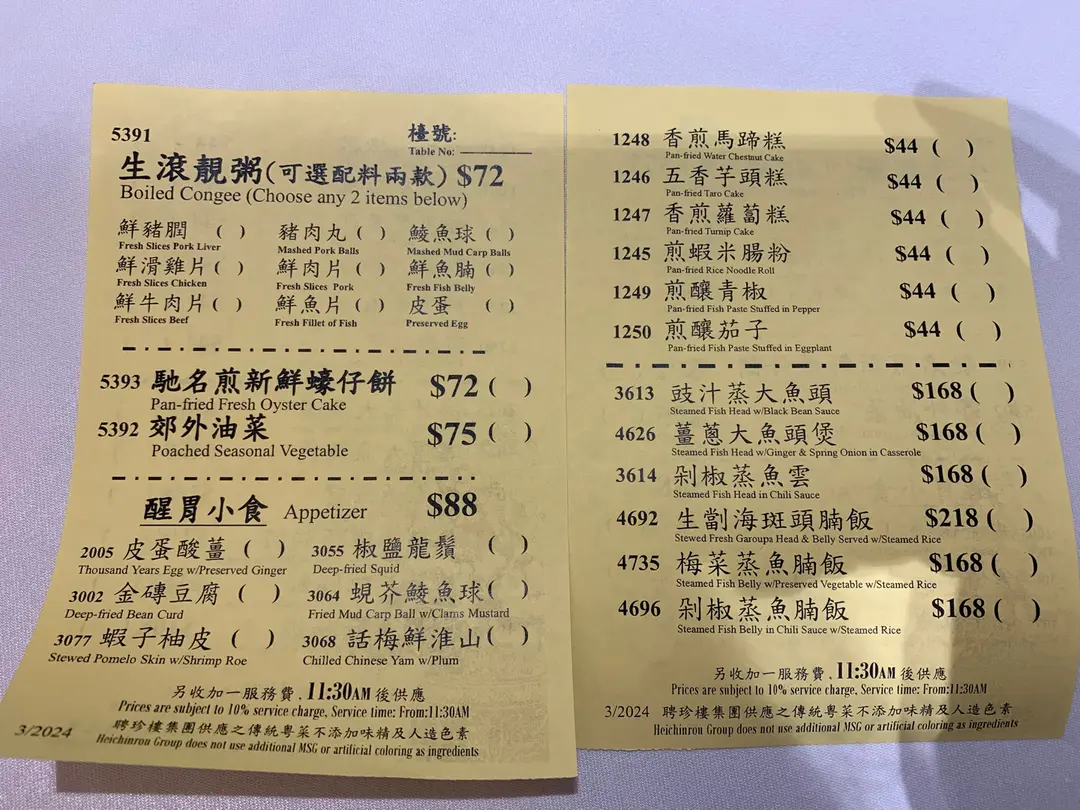 5391 檯號:
Table No:
生滾靚粥(可選配料兩款) $72
Boiled Congee (Choose any 2 items below)
鮮豬膶 ( ) 豬肉丸 ( ) 鯪魚球 ( )
Fresh Slices Pork Liver Mashed Pork Balls Mashed Mud Carp Balls
鮮滑雞片 ( ) 鮮肉片 ( ) 鮮魚腩 ( )
Fresh Slices Chicken Fresh Slices Pork Fresh Fish Belly
鮮牛肉片 ( ) 鮮魚片 ( ) 皮蛋 ( )
Fresh Slices Beef Fresh Fillet of Fish Preserved Egg
5393 馳名煎新鮮蠔仔餅 $72 ( )
Pan-fried Fresh Oyster Cake
5392 郊外油菜 $75 ( )
Poached Seasonal Vegetable
醒胃小食 Appetizer $88
2005 皮蛋酸薑 ( ) 3055 椒鹽龍鬚 ( )
Thousand Years Egg w/Preserved Ginger Deep-fried Squid
3002 金磚豆腐 ( ) 3064 蜆芥鯪魚球 ( )
Deep-fried Bean Curd Fried Mud Carp Ball w/Clams Mustard
3077 蝦子柚皮 ( ) 3068 話梅鮮淮山 ( )
Stewed Pomelo Skin w/Shrimp Roe Chilled Chinese Yam w/Plum
另收加一服務費﹐11:30AM 後供應
Prices are subject to 10% service charge, Service time: From:11:30AM
3/2024 聘珍樓集團供應之傳統粵菜不添加味精及人造色素
Heichinrou Group does not use additional MSG or artificial coloring as ingredients
1248 香煎馬蹄糕 $44 ( )
Pan-fried Water Chestnut Cake
1246 五香芋頭糕 $44 ( )
Pan-fried Taro Cake
1247 香煎蘿蔔糕 $44 ( )
Pan-fried Turnip Cake
1245 煎蝦米腸粉 $44 ( )
Pan-fried Rice Noodle Roll
1249 煎釀青椒 $44 ( )
Pan-fried Fish Paste Stuffed in Pepper
1250 煎釀茄子 $44 ( )
Pan-fried Fish Paste Stuffed in Eggplant
3613 豉汁蒸大魚頭 $168 ( )
Steamed Fish Head w/Black Bean Sauce
4626 薑蔥大魚頭煲 $168 ( )
Steamed Fish Head w/Ginger & Spring Onion in Casserole
3614 剁椒蒸魚雲 $168 ( )
Steamed Fish Head in Chili Sauce
4692 生劏海斑頭腩飯 $218 ( )
Stewed Fresh Garoupa Head & Belly Served w/Steamed Rice
4735 梅菜蒸魚腩飯 $168 ( )
Steamed Fish Belly w/Preserved Vegetable w/Steamed Rice
4696 剁椒蒸魚腩飯 $168 ( )
Steamed Fish Belly in Chili Sauce w/Steamed Rice
另收加一服務費﹐11:30AM 後供應
Prices are subject to 10% service charge, Service time: From:11:30AM
3/2024 聘珍樓集團供應之傳統粵菜不添加味精及人造色素
Heichinrou Group does not use additional MSG or artificial coloring as ingredients